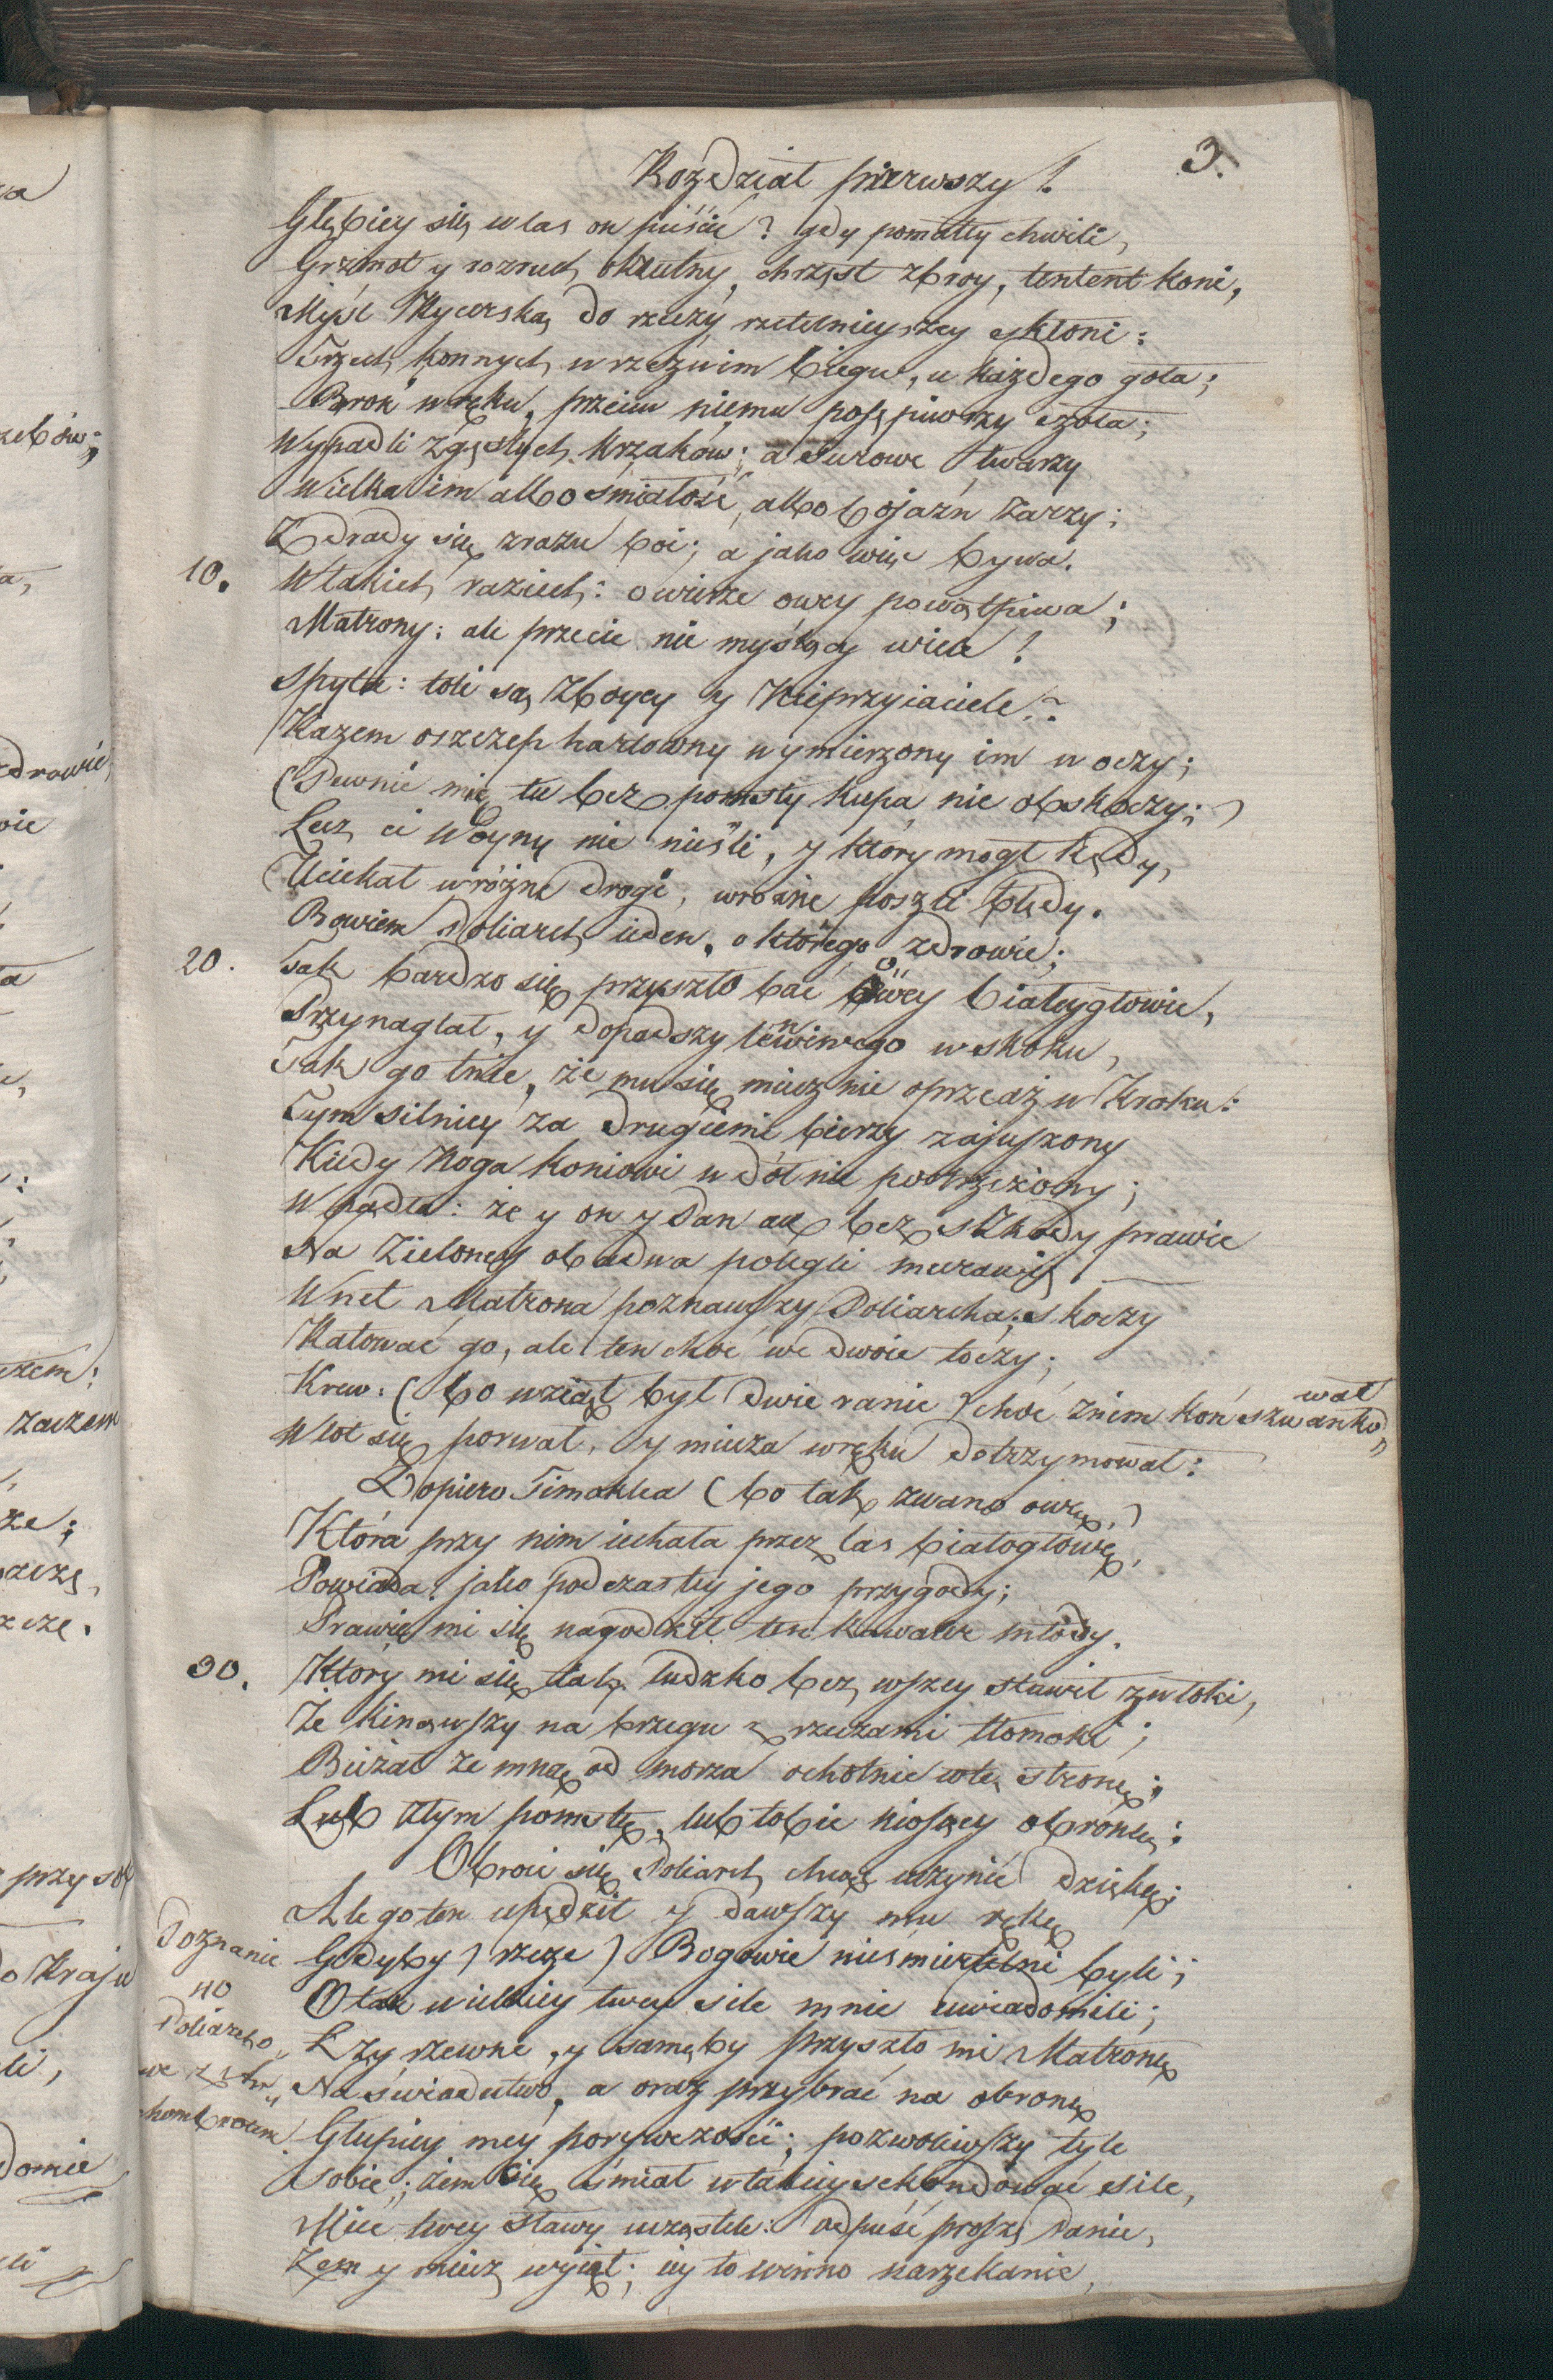 3.
Rozdział pierwszy!
Głębiey się w las on puście? gdy pomáły chwili,
Grzmot y rozruch okrutny, chrzęst zbroy, tentent koni,
Myśl Rycerską do rzeczy rzetelnieyszey skłoni:
Trzech konnych w rzezwim biegu, u każdego goła;
Broń w ręku, przeciw niemu posępiwszy czoła;
Wypadli z gęstych krzaków; a surowe twarzy
Wielka im albo śmiałość, albo bojaźn żarzy;
Zdrady się zrazu boi; a jako więc bywa.
10. W takich raziech: o wierze owey powątpiwa;
Matrony: ale przecie nie myślący wiele!
Spyta: toli są Zboycy y Nieprzyiaciele?
Razem oszczep hartowny wymierzony im w oczy;
(Pewnie mię tu bez pomsty kupa nie obskoczy;)
Lecz ci Woyny nie nieśli, y ktory mogł kędy,
Uciekał w różne drogi, w rożne poszli błędy.
Bowiem Poliarch ieden, o ktorego zdrowie;
20. Tak bardzo się przyszło bać owey białeygłowie,
Przynaglał, y dopadszy leniwego w skoku,
Tak go tnie, że mu się miecz nie oprze aż w Kroku:
Tym silniey za drugiemi bierzy zajuszony
Kiedy Noga koniowi w dół nie postrzeżony;
Wpadła: że y on y Pan ale bez szkody prawie
Na Zieloney obadwa polegli murawie.
Wnet Matrona poznawszy Poliarcha; skoczy
Ratować go, ale ten choć we dwoie toczy;
Krew. (bo wziął był dwie ranie) choć z nim koń szwankował,
Wlot się porwał, y miecza w ręku dotrzymował:
Dopiero Timoklea (bo tak zwano owę,)
Która przy nim iechała przez las białogłowę,
Powiada: jako podczas tey jego przygody;
Prawie mi się nagodził ten kawaler młody.
30. Ktory mi się tak ludzko bez wszey stawił zwłoki,
Że kinąwszy na brzegu z rzeczami tłomoki;
Bieżał ze mną od morza ochotnie w tę stronę;
Lub złym pomstę, lub tobie niosący obronę:
Obroci się Poliarch chcąc uczynić dzięki;
Ale go ten upędził y dawszy mu rękę
Gdyby) rzecze) Bogowie nieśmiertelni byli;
O tak wielkiey twey sile mnie uwiadomili;
Łzy rzewne, y samęby przyszło mi Matronę
Na świadectwo, a oraz przybrać na obronę
Głupiey mey porywczości; pozwoliwszy tyle
Sobie; żem się śmiał w takiey sekundować sile,
Miec twey sławy ucząstek: odpuść proszę Panie,
Żem y miecz wyiął; iey to winno narzekanie,
Poznanie
40
Poliarcho
we z Ar
chombrotem